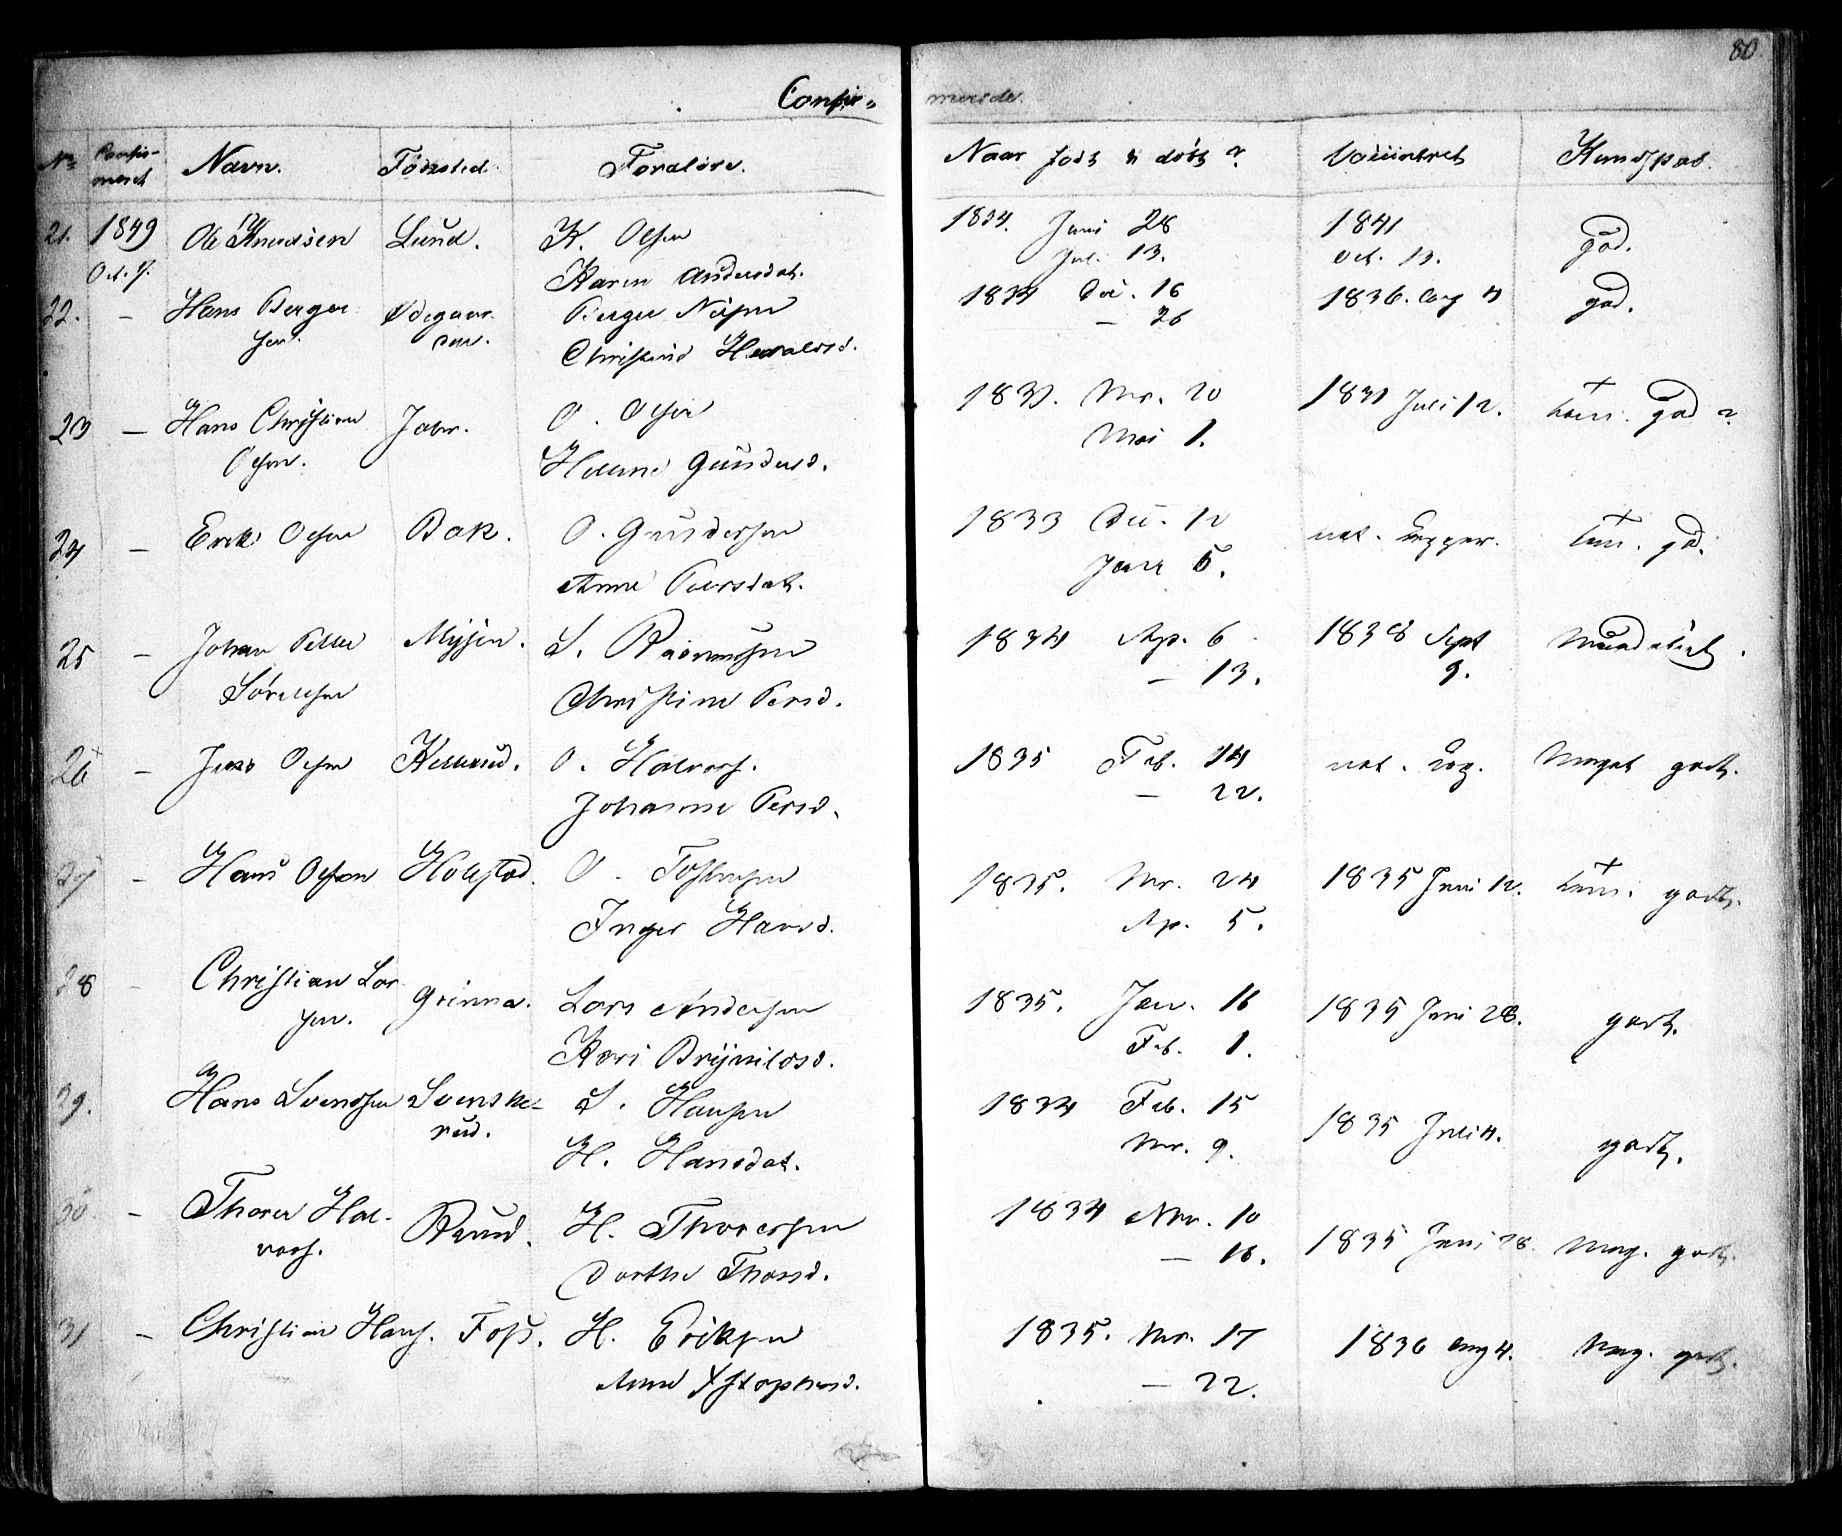 80.
Confir= merede.
No Confirmeret Navn. Fødested. Forældre. Naar født & døbt? Vaccineret Kundskab.
21. 1849 Ole Knudsen Lund. K. Olsen 1834. Juni 28 1841 god.
Oct. 7. Karen Andersdat. Jul. 13. Oct. 13.
22. — Hans Berger Ødegaar Berger Nilsen 1834 Dec. 16 1836. Aug 4 god.
sen. den. Christine Haraldsd. — 26
23 — Hans Christian Jahr. O. Olsen 1831. Mr. 20 1831 Juli 12. tem. god?
Olsen. Helene Gundersd. Mai 1.
24 — Erik Olsen Bak. O. Gundersen 1833 Dec. 12 nat. kopper. tem. gd.
Anne Peersdat. Janr 5.
25 — Johan Peter Mysen. S. Rasmussen 1834 Ap. 6 1838 Sept Maadelig.
Sørensen Christine Persd. — 13. 9.
26 — Jens Olsen Kellerud. O. Halvors. 1835 Feb. 14 nat. kop. Meget godt.
Johanne Persd. — 22.
27 — Hans Olsen Holstad. O. Tostensen 1835. Mr. 24 1835 Juni 12. tem. godt.
Inger Hansd. Ap. 5.
28 — Christian Lar Grinna. Lars Andersen 1835. Jan. 16 1835 Juni 28. godt.
sen. Kari Brynildsd. Feb. 1.
29. Hans Svendsen Svenske= S. Hansen 1834 Feb. 15 1835 Juli 4. godt.
rud. H. Hansdat. Mr. 9.
30 — Thorer Hal- Raud. H. Thoresen 1834 Nov. 10 1835 Juni 28. Meg. godt.
vors. Dorthe Thorsd. — 16.
31 — Christian Hans. Foss. H. Eriksen 1835. Mr. 17 1836 Aug 4. Meg. godt.
Anne Xstophersd. — 22.